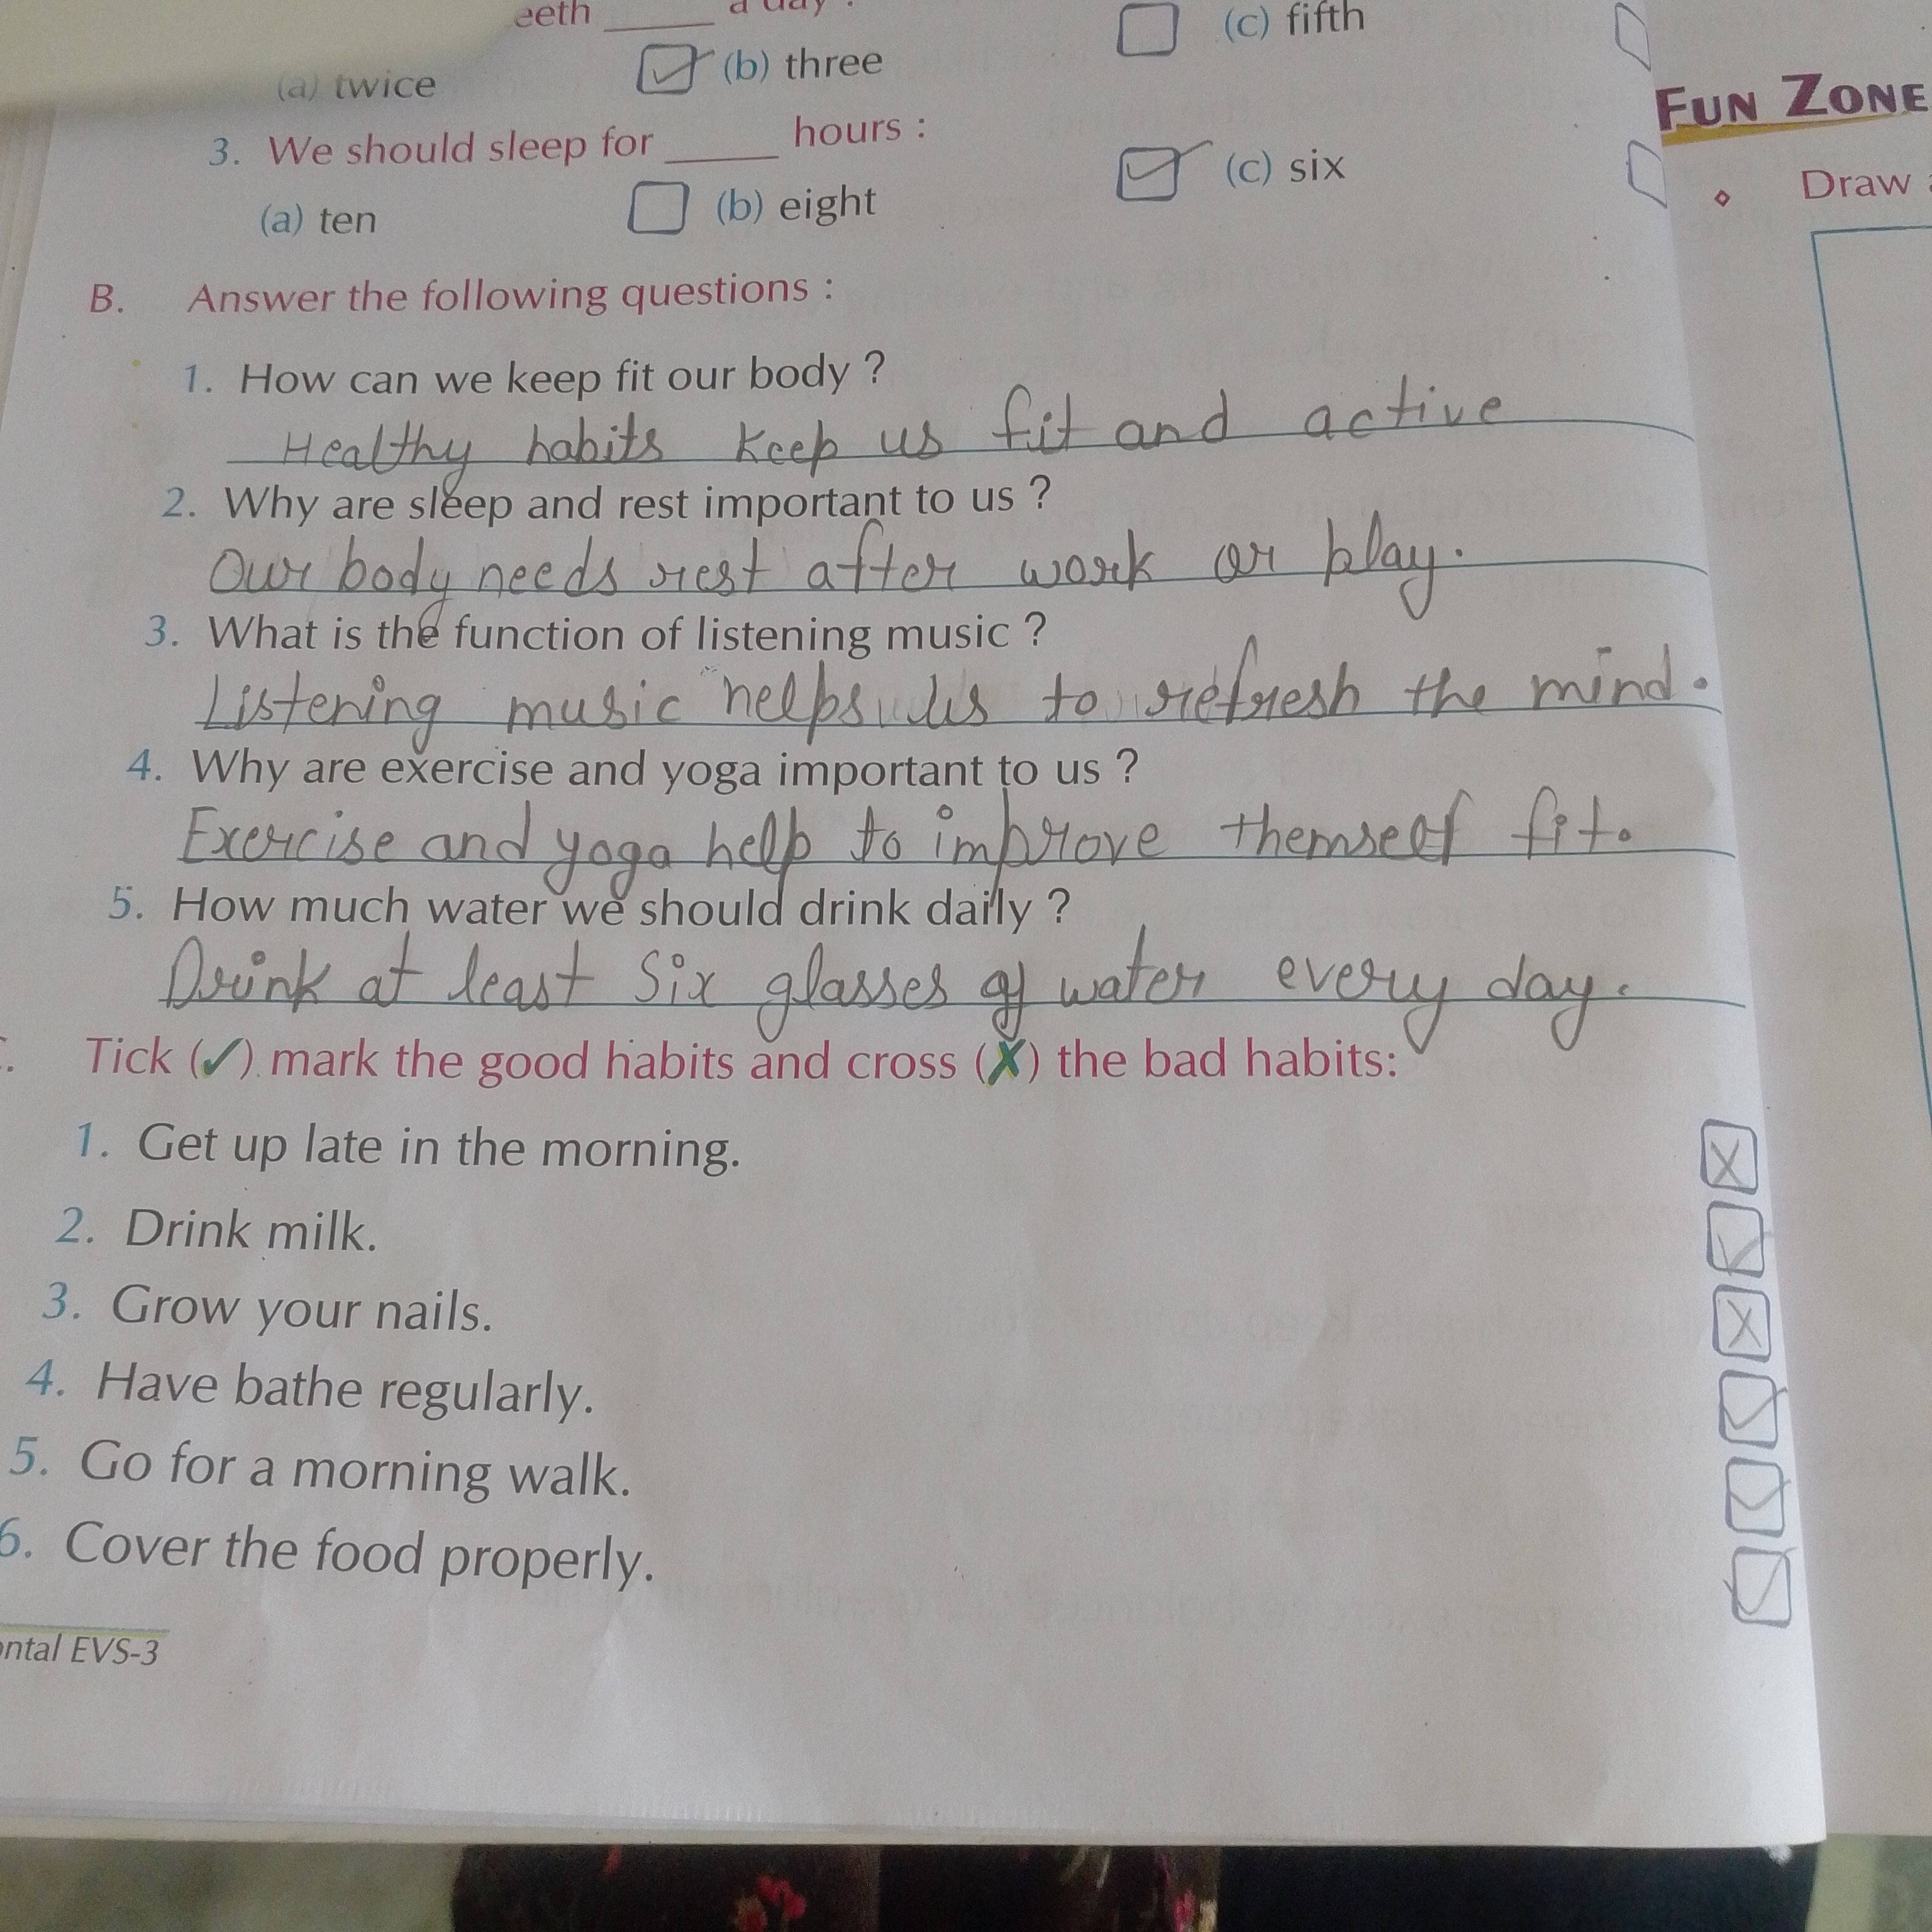 eeth _____ a day :
(a) twice ☑ (b) three ☐ (c) fifth ☐
3. We should sleep for _____ hours :
(a) ten ☐ (b) eight ☑ (c) six ☐
B. Answer the following questions :
1. How can we keep fit our body ?
Healthy habits keep us fit and active
2. Why are sleep and rest important to us ?
Our body needs rest after work or play.
3. What is the function of listening music ?
Listening music helps us to refresh the mind.
4. Why are exercise and yoga important to us ?
Exercise and yoga help to improve themself fit.
5. How much water we should drink daily ?
Drink at least six glasses of water every day.
Tick (✓) mark the good habits and cross (✗) the bad habits:
1. Get up late in the morning. ☒
2. Drink milk. ☑
3. Grow your nails. ☒
4. Have bathe regularly. ☑
5. Go for a morning walk. ☑
6. Cover the food properly. ☑
ontal EVS-3
FUN ZONE
Draw